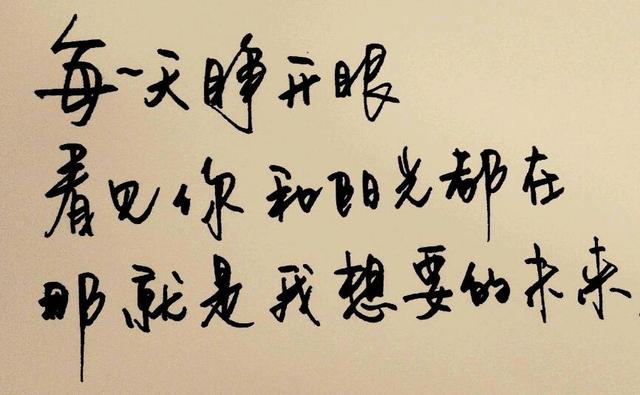 每一天睁开眼
看见你和阳光都在
那就是我想要的未来